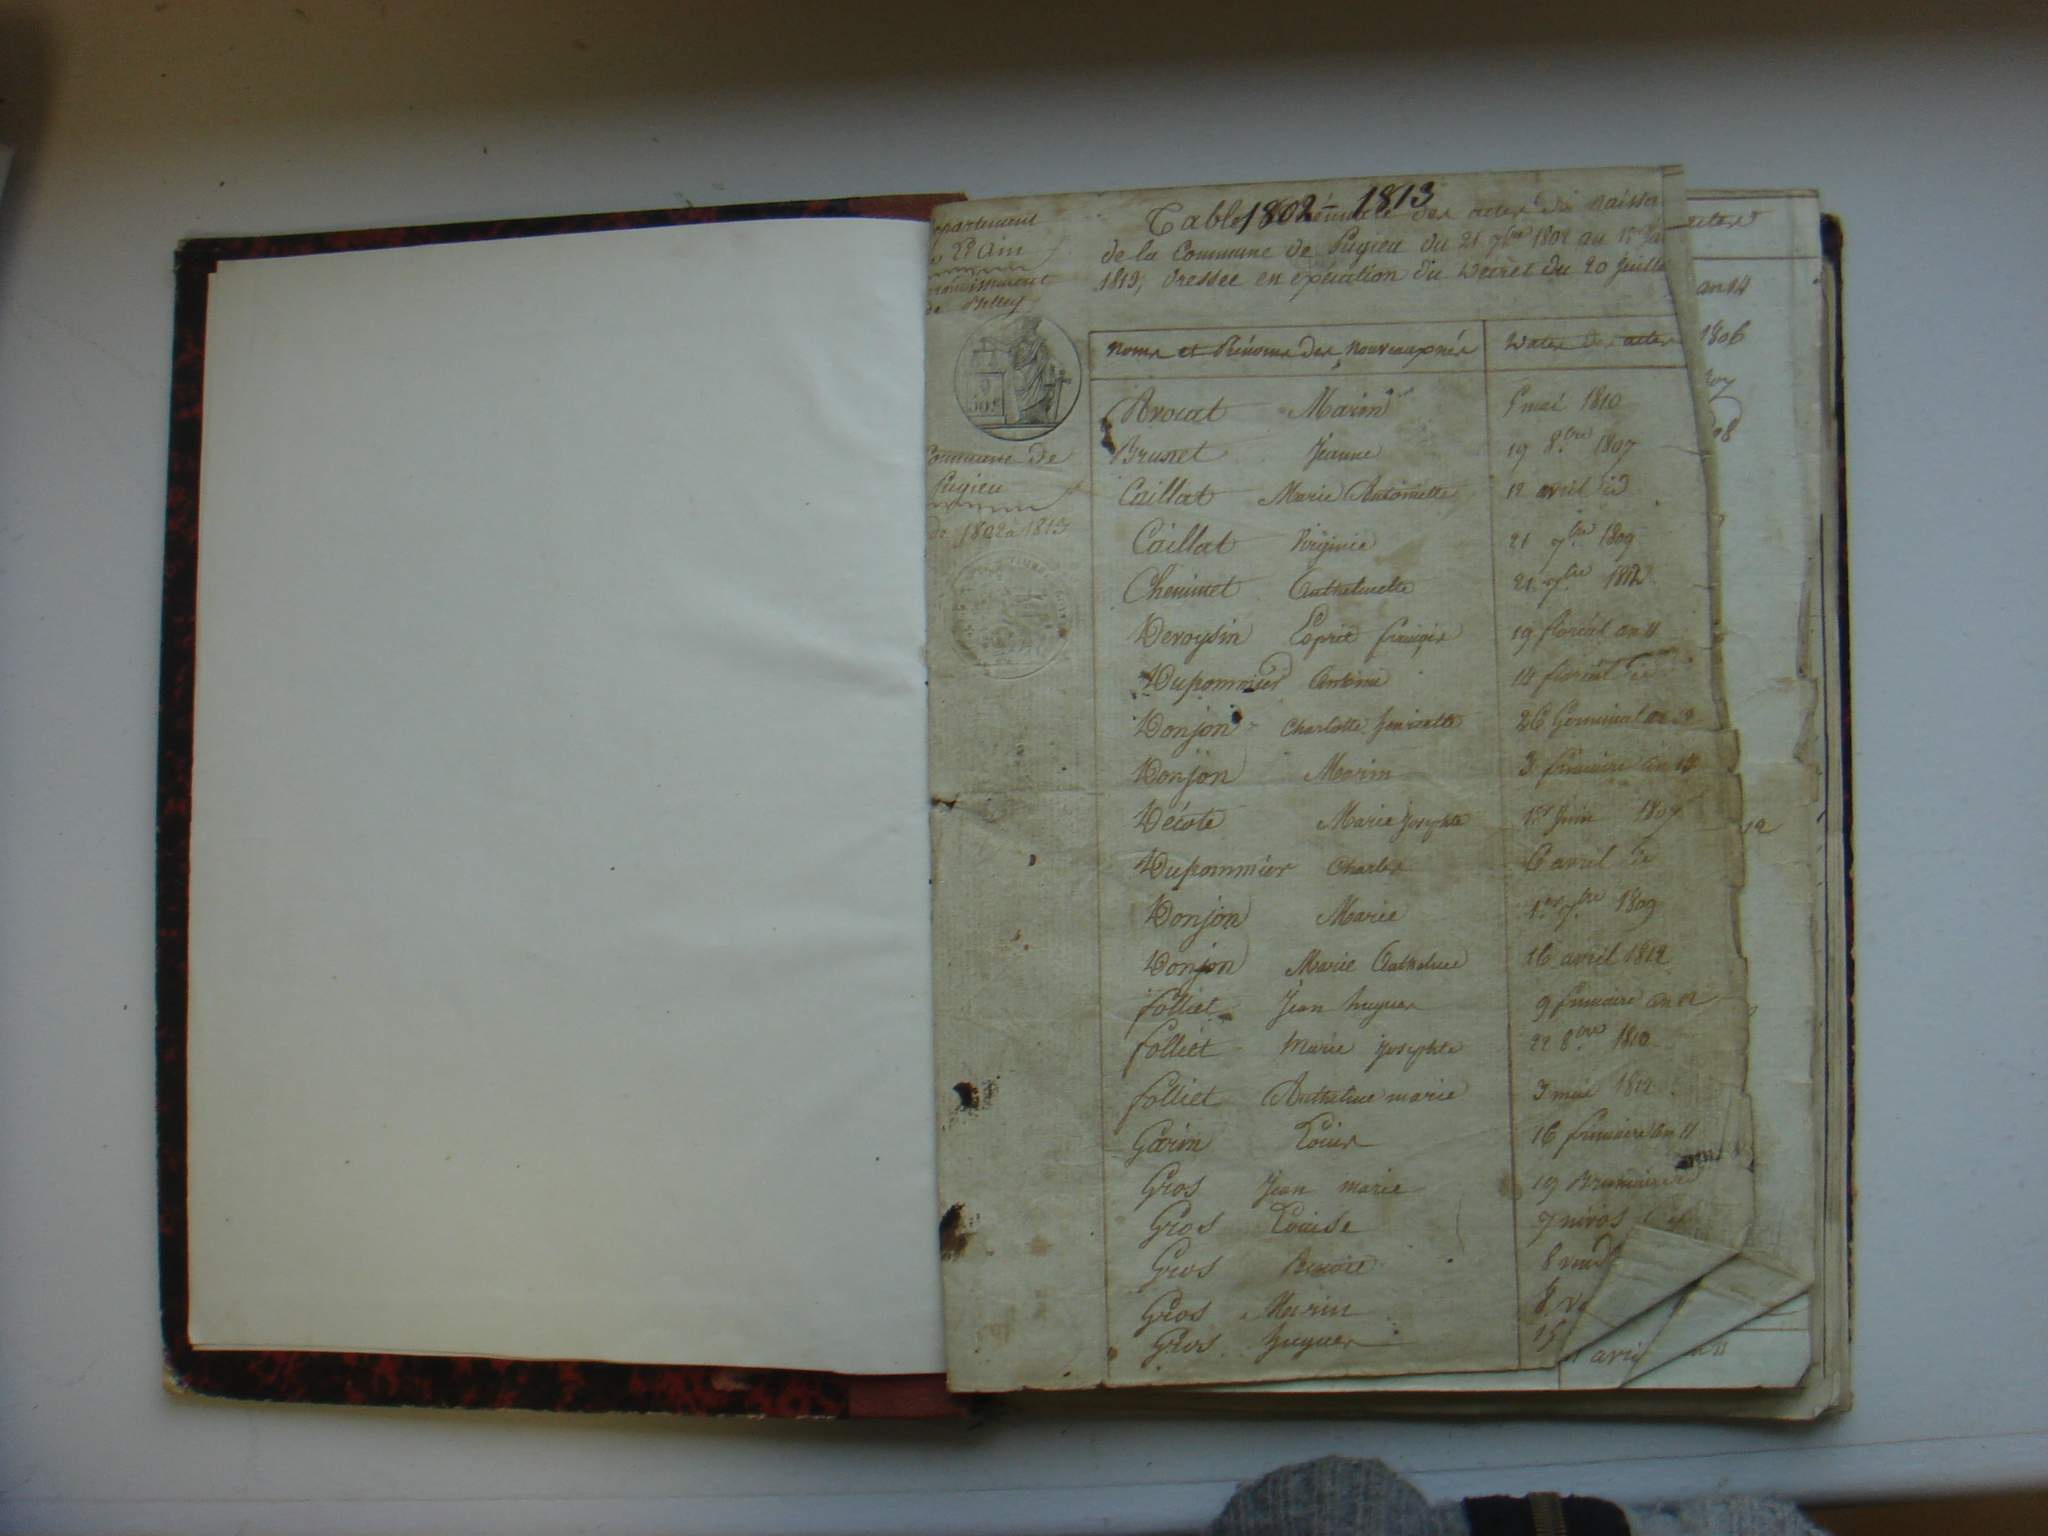 1802 - 1813
Table des actes de naissa
de la Commune de Pugieu du 21 7bre 1802 au 1er Ja
1813, dressée en exécution du Décret du 20 Juille
epartement
de l'Ain
rrondissement
de Belley
Commune de
Pugieu
de 1802 à 1813
Noms et Prénoms des Nouveaux nés Dates des actes
Avocat Marin 5 mai 1810
Brunet Jeanne 19 8bre 1807
Caillat Marie Antoinette 12 avril id
Caillat Virginie 21 7bre 1809
Cheminet Anthelmette 21 7bre 1812
Devoysin Esprit françois 19 floréal an 11
Dupommier Antoine 14 floréal id
Donjon Charlotte henriette 26 Germinal an 12
Donjon Marin 3 frimaire an 14
Décote Marie Josephte 1er Juin 1807
Dupommier Charles 6 avril id
Donjon Marie 1er 7bre 1809
Donjon Marie Anthelme 16 avril 1812
folliet Jean hugues 9 frimaire an 12
folliet Marie Josephte 22 8bre 1810
folliet Anthelme marie 3 mai 1812
Garin Louis 16 frimaire an 11
Gros Jean marie 19 Brumaire id
Gros Louise 7 nivos
Gros Benoit 8 vend
Gros Marin 8
Gros hugues 15
actes
an 14
1806
08
12
avri